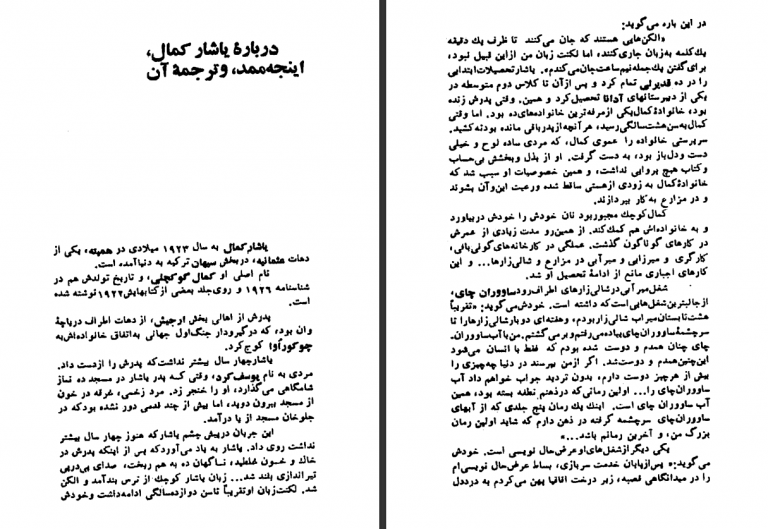 دربارهٔ یاشار کمال،
اینجه‌ممد، و ترجمهٔ آن
یاشار کمال به سال ۱۹۲۳ میلادی در همیته، یکی از
دهات عثمانیه، در بخش سیهان ترکیه به دنیا آمده است.
نام اصلی او کمال گوکچلی، و تاریخ تولدش هم در
شناسنامه ۱۹۲۶ و روی جلد بعضی از کتابهایش ۱۹۲۲ نوشته شده
است.
پدرش از اهالی بخش ارجیش، از دهات اطراف دریاچهٔ
وان بود، که در گیرودار جنگ اول جهانی به اتفاق خانواده‌اش به
چوکوراوا کوچ کرد.
یاشار چهار سال بیشتر نداشت که پدرش را از دست داد.
مردی به نام یوسف کور، وقتی که پدر یاشار در مسجد ده نماز
شامگاهی می‌گذارد، او را خنجر زد. مرد زخمی، غرقه در خون
از مسجد بیرون دوید، اما بیش از چند قدمی دور نشده بود که در
جلوخان مسجد از پا درآمد.
این جریان در پیش چشم یاشار که هنوز چهار سال بیشتر
نداشت روی داد. یاشار به یاد می‌آورد که پس از اینکه پدرش در
خاک و خون غلطید، ناگهان ده به هم ریخت، صدای پی‌درپی
تیراندازی بلند شد... زبان یاشار کوچک از ترس بند آمد و الکن
شد. لکنت زبان او تقریباً تا سن دوازده سالگی ادامه داشت و خودش
در این باره می‌گوید:
«الکن‌هایی هستند که جان می‌کنند تا ظرف یک دقیقه
یک کلمه به زبان جاری کنند، اما لکنت زبان من از این قبیل نبود،
برای گفتن یک جمله نیم ساعت جان می‌کندم». یاشار تحصیلات ابتدایی
را در ده قدیرلی تمام کرد و پس از آن تا کلاس دوم متوسطه در
یکی از دبیرستانهای آدانا تحصیل کرد و همین. وقتی پدرش زنده
بود، خانوادهٔ کمال یکی از مرفه‌ترین خانواده‌های ده بود. اما وقتی
کمال به سن هشت سالگی رسید، هر آنچه از پدر باقی مانده بود ته کشید.
سرپرستی خانواده را عموی کمال، که مردی ساده لوح و خیلی
دست و دل باز بود، به دست گرفت. او از بذل و بخشش بی‌حساب
و کتاب هیچ پروایی نداشت، و همین خصوصیات او سبب شد که
خانوادهٔ کمال به زودی از هستی ساقط شده و رعیت این و آن بشوند
و در مزارع به کار بپردازند.
کمال کوچک مجبور بود نان خودش را خودش دربیاورد
و به خانواده‌اش هم کمک کند. از همین رو مدت زیادی از عمرش
در کارهای گوناگون گذشت. عملگی در کارخانه‌های گونی‌بافی،
کارگری و میرزایی و میرآبی در مزارع و شالی‌زارها... و این
کارهای اجباری مانع از ادامهٔ تحصیل او شد.
شغل میرآبی در شالی‌زارهای اطراف رود ساووران چای،
از جالبترین شغل‌هایی است که داشته است. خودش می‌گوید: «تقریباً
هشت تابستان میراب شالی‌زار بودم، و هفته‌ای دوبار شالی‌زارها را تا
سرچشمهٔ ساووران چای پیاده می‌رفتم و برمی‌گشتم. من با آب ساووران.
چای چنان همدم و دوست شده بودم که فقط با انسان می‌شود
این‌چنین همدم و دوست شد. اگر از من بپرسند در دنیا چه چیزی را
بیش از هر چیز دوست دارم، بدون تردید جواب خواهم داد آب
ساووران چای را... اولین رمانی که در ذهنم نطفه بسته بود، همین
آب ساووران چای است. اینک یک رمان پنج جلدی که از آبهای
ساووران چای سرچشمه گرفته در ذهن دارم که شاید اولین رمان
بزرگ من، و آخرین رمانم باشد...»
یکی دیگر از شغل‌های او عرض حال نویسی است. خودش
می‌گوید: «پس از پایان خدمت سربازی، بساط عرض حال نویسی‌ام
را در میدانگاهی قصبه، زیر درخت اقاقیا پهن می‌کردم به درددل